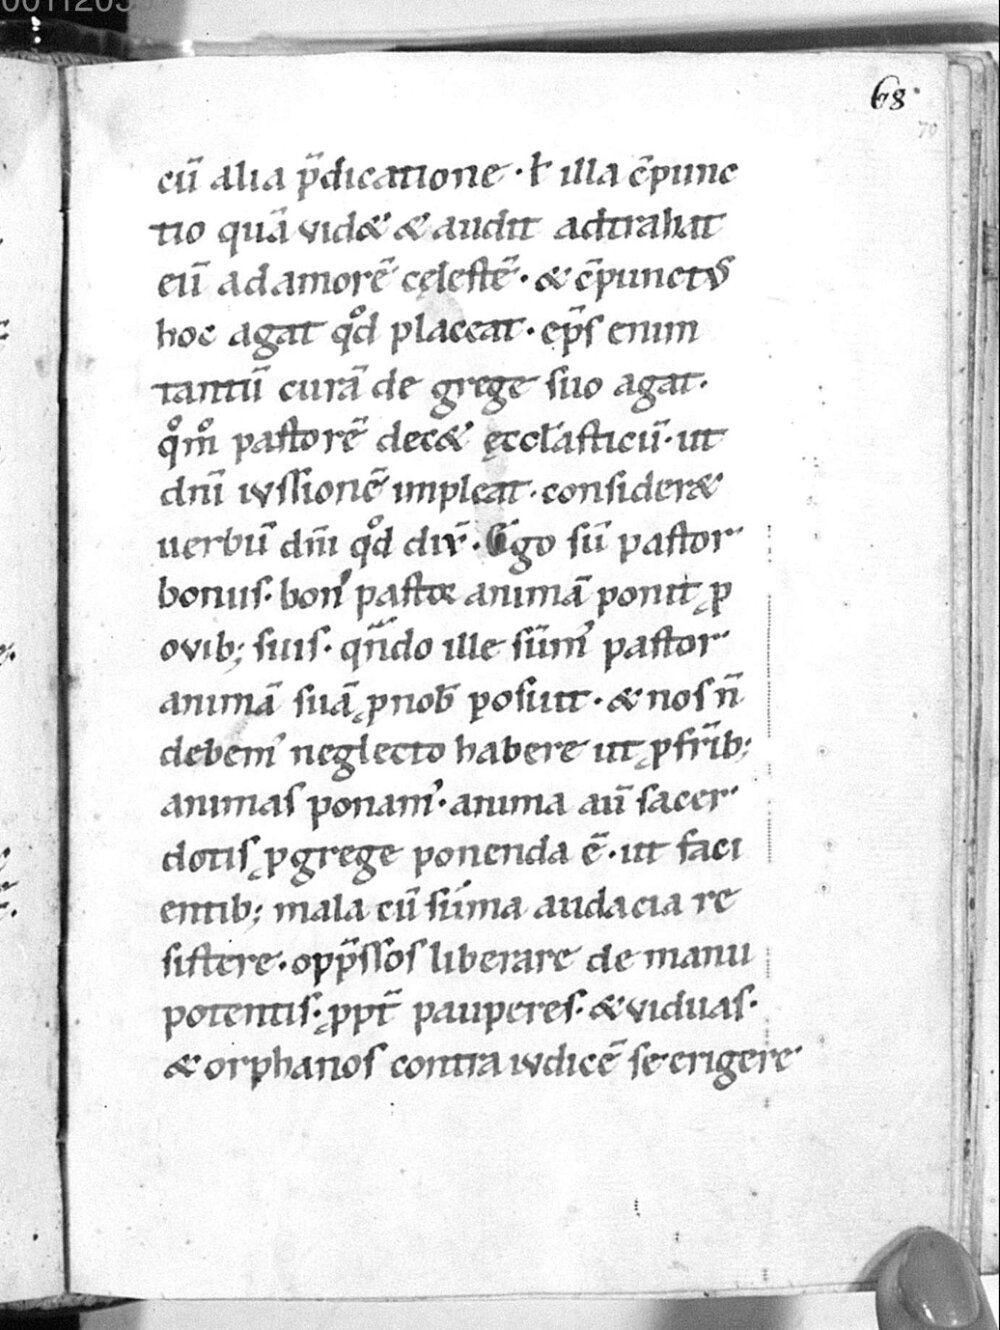 68
70
cū alia p̄dicatione · ł illa c̄punc
tio quā vid& & audit adtrahat
eū ad amorē cęlestē · & c̄punctus
hoc agat qͦd placeat · ep̄s enim
tantū curā de grege suo agat ·
qͦm̄ pastorē dec& ęccl̄asticū · ut
dn̄i iussionē impleat · consider&
uerbū dn̄i qͦd dix̄ · Ego sū pastor
bonus · bonꝰ pastor animā ponit ꝓ
ovib; suis · qn̄do ille sūmꝰ pastor
animā suā ꝓ nob̄ posuit · & nos n̄
debemꝰ neglecto habere ut ꝓ fr̄ib;
animas ponamꝰ · anima aū sacer
dotis ꝓ grege ponenda ē · ut faci
entib; mala cū sūma audacia re
sistere · opp̄ssos liberare de manu
potentis · ꝓpt̄ pauperes · & viduas ·
& orphanos contra iudicē se erigere